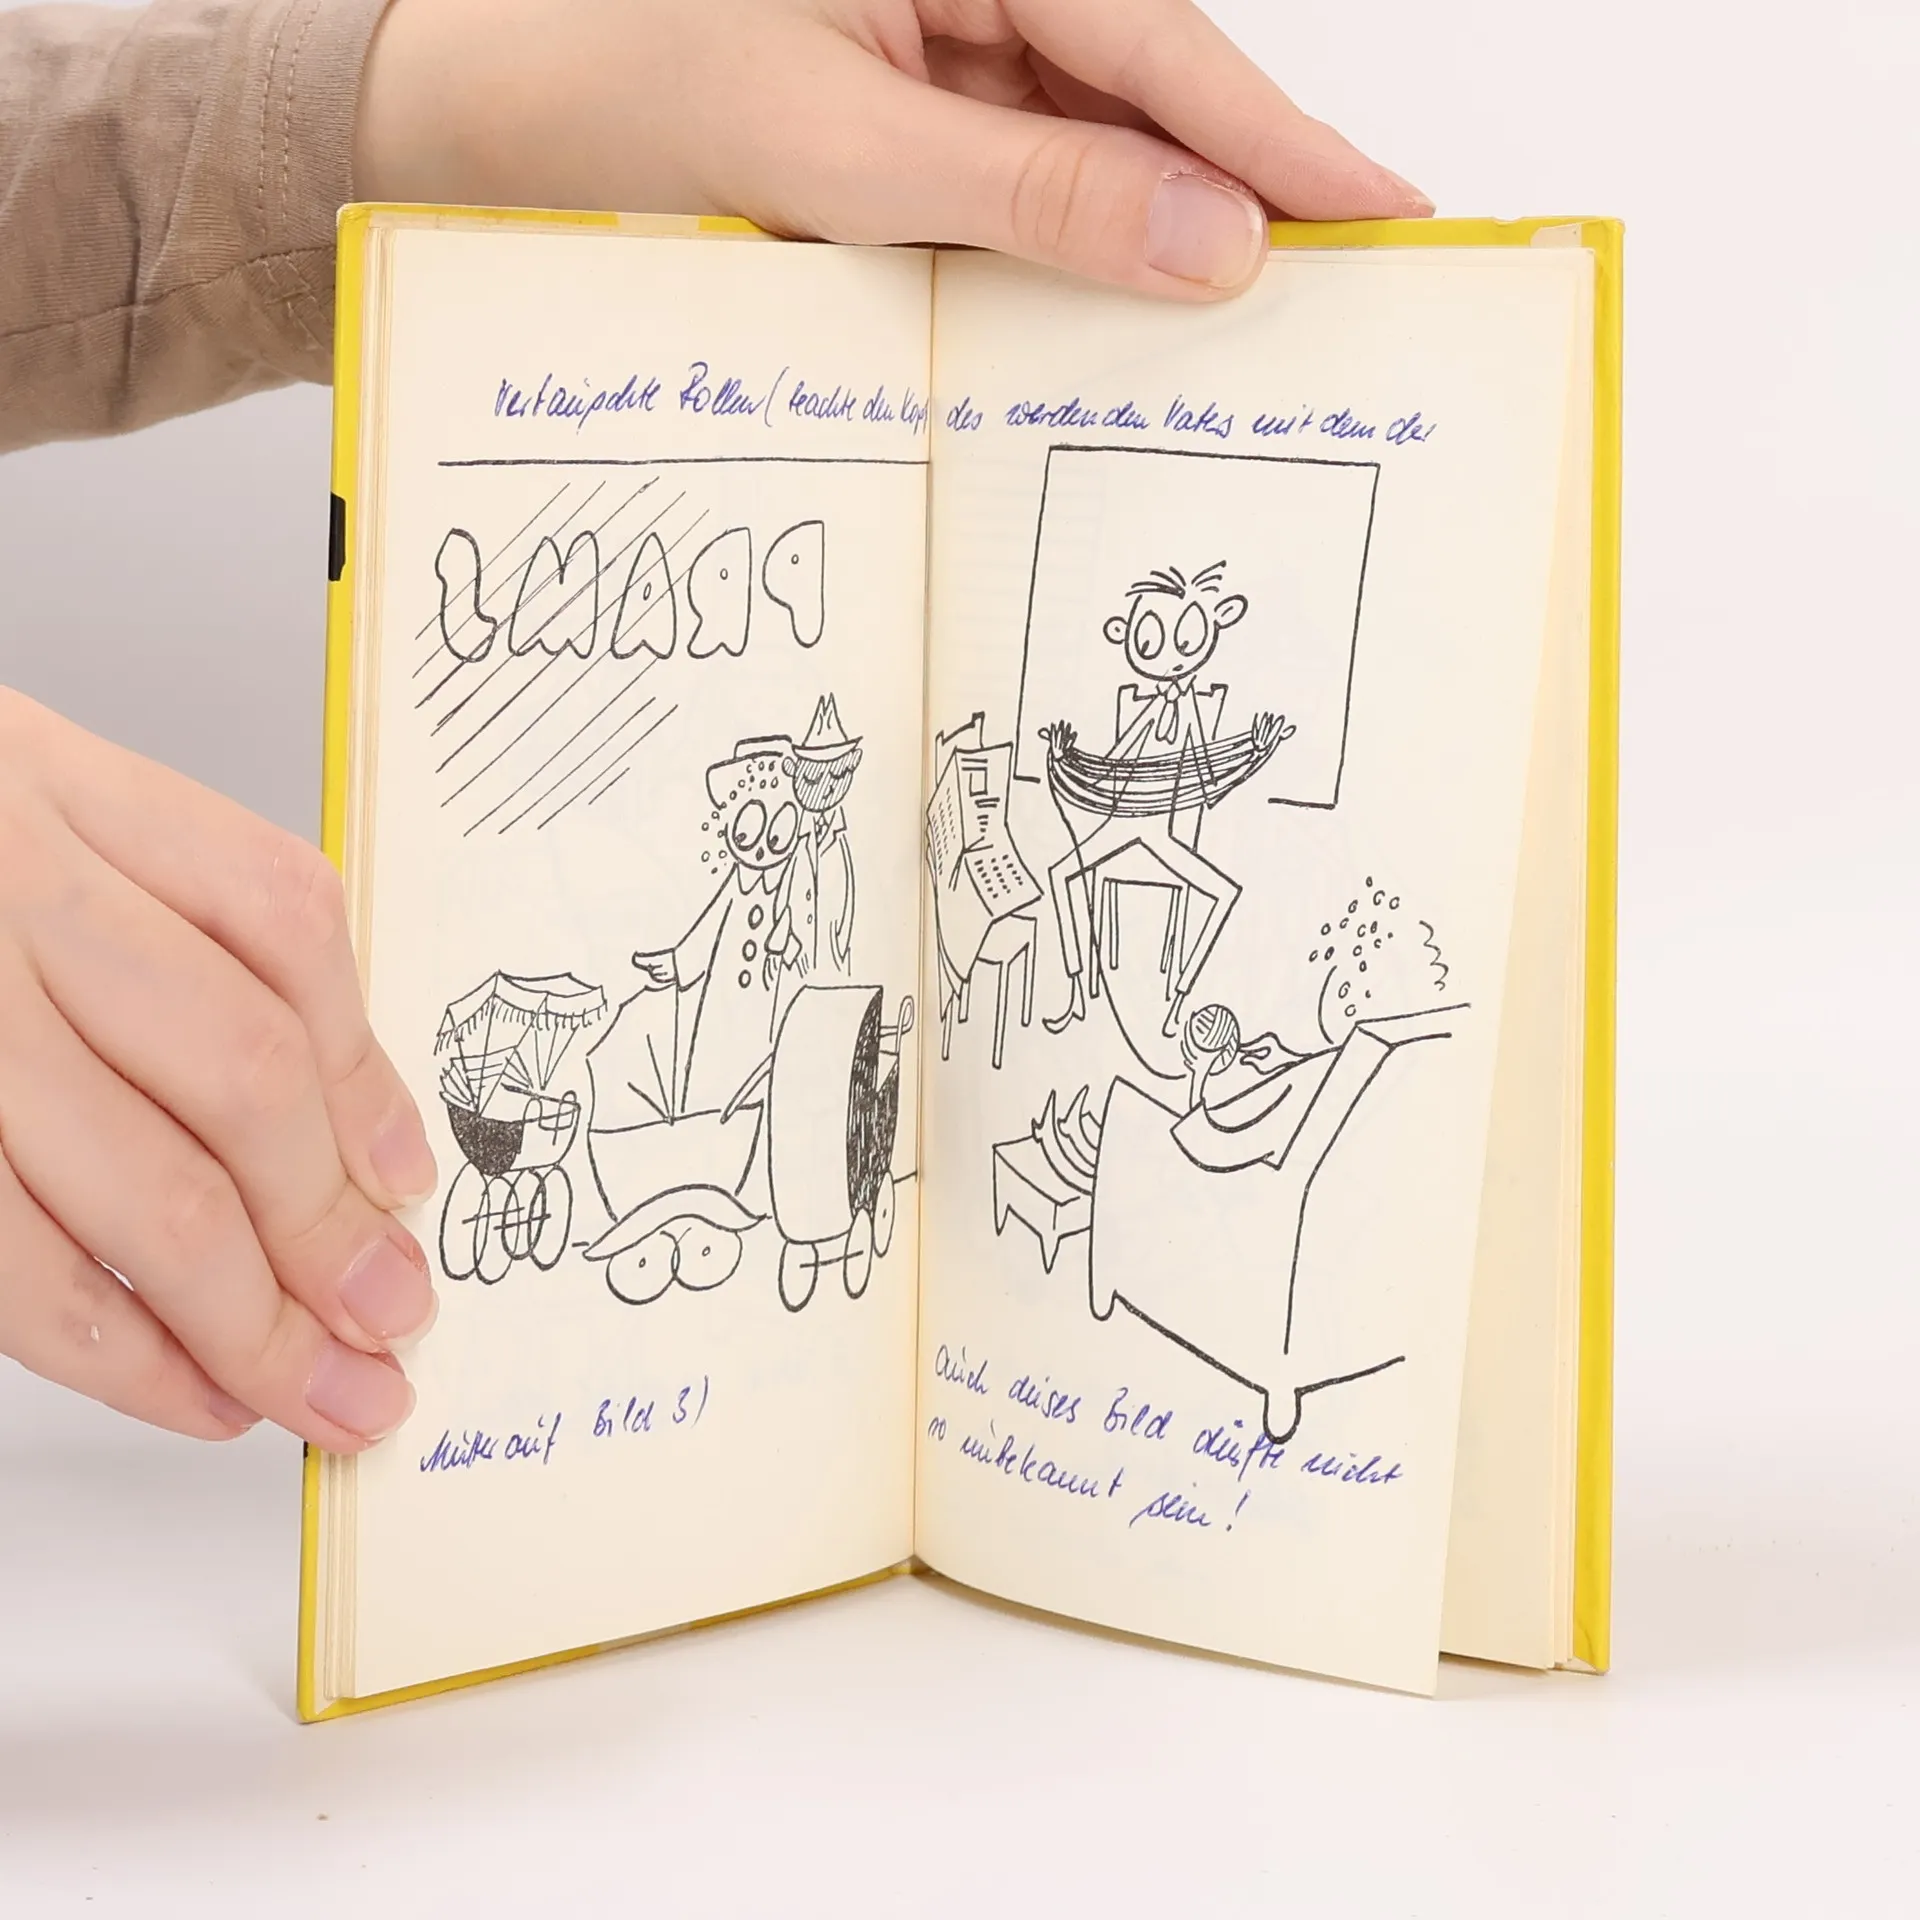 Vertauschte Rollen (beachte den Kopf des werdenden Vaters mit dem der
PRAMS
Mutter auf Bild 3)
Auch dieses Bild dürfte nicht
so unbekannt sein!